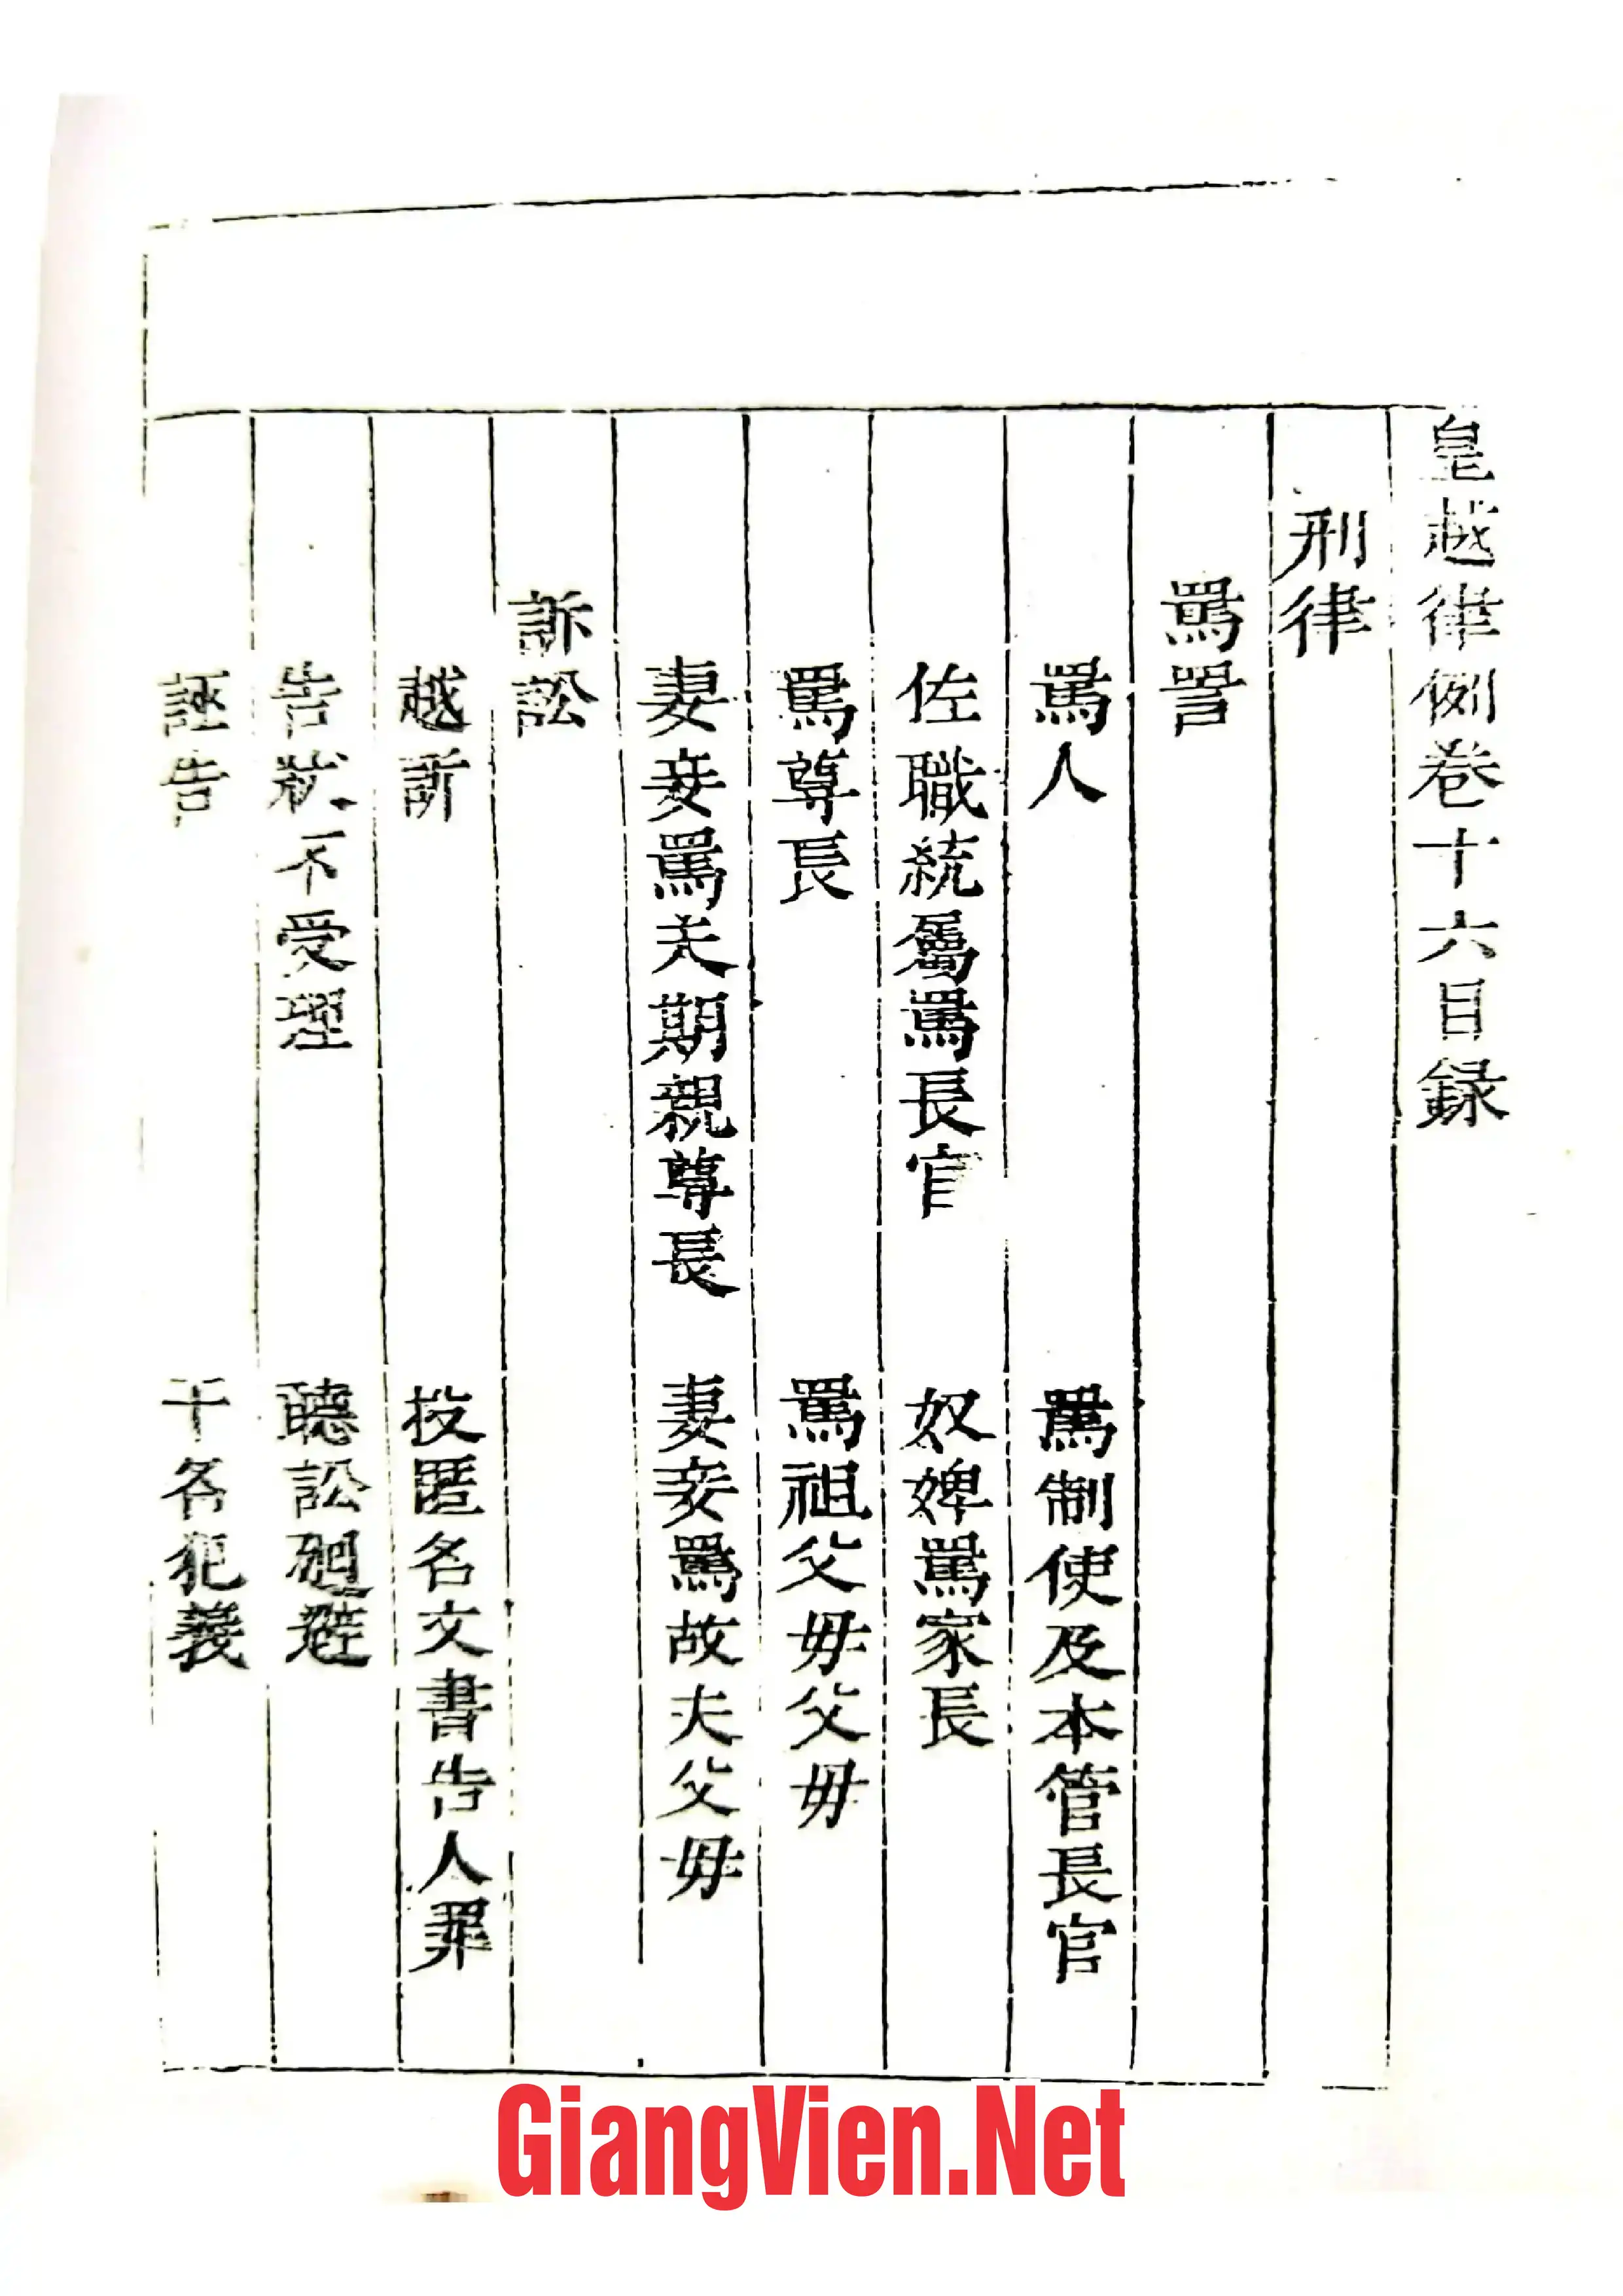 皇越律例卷十六目録
刑律
罵詈
罵人 罵制使及本管長官
佐職統屬罵長官 奴婢罵家長
罵尊長 罵祖父毋父毋
妻妾罵夫期親尊長 妻妾罵故夫父毋
訴訟
越訴 投匿名文書告人罪
告狀不受理 聽訟廻避
誣告 干名犯義
GiangVien.Net